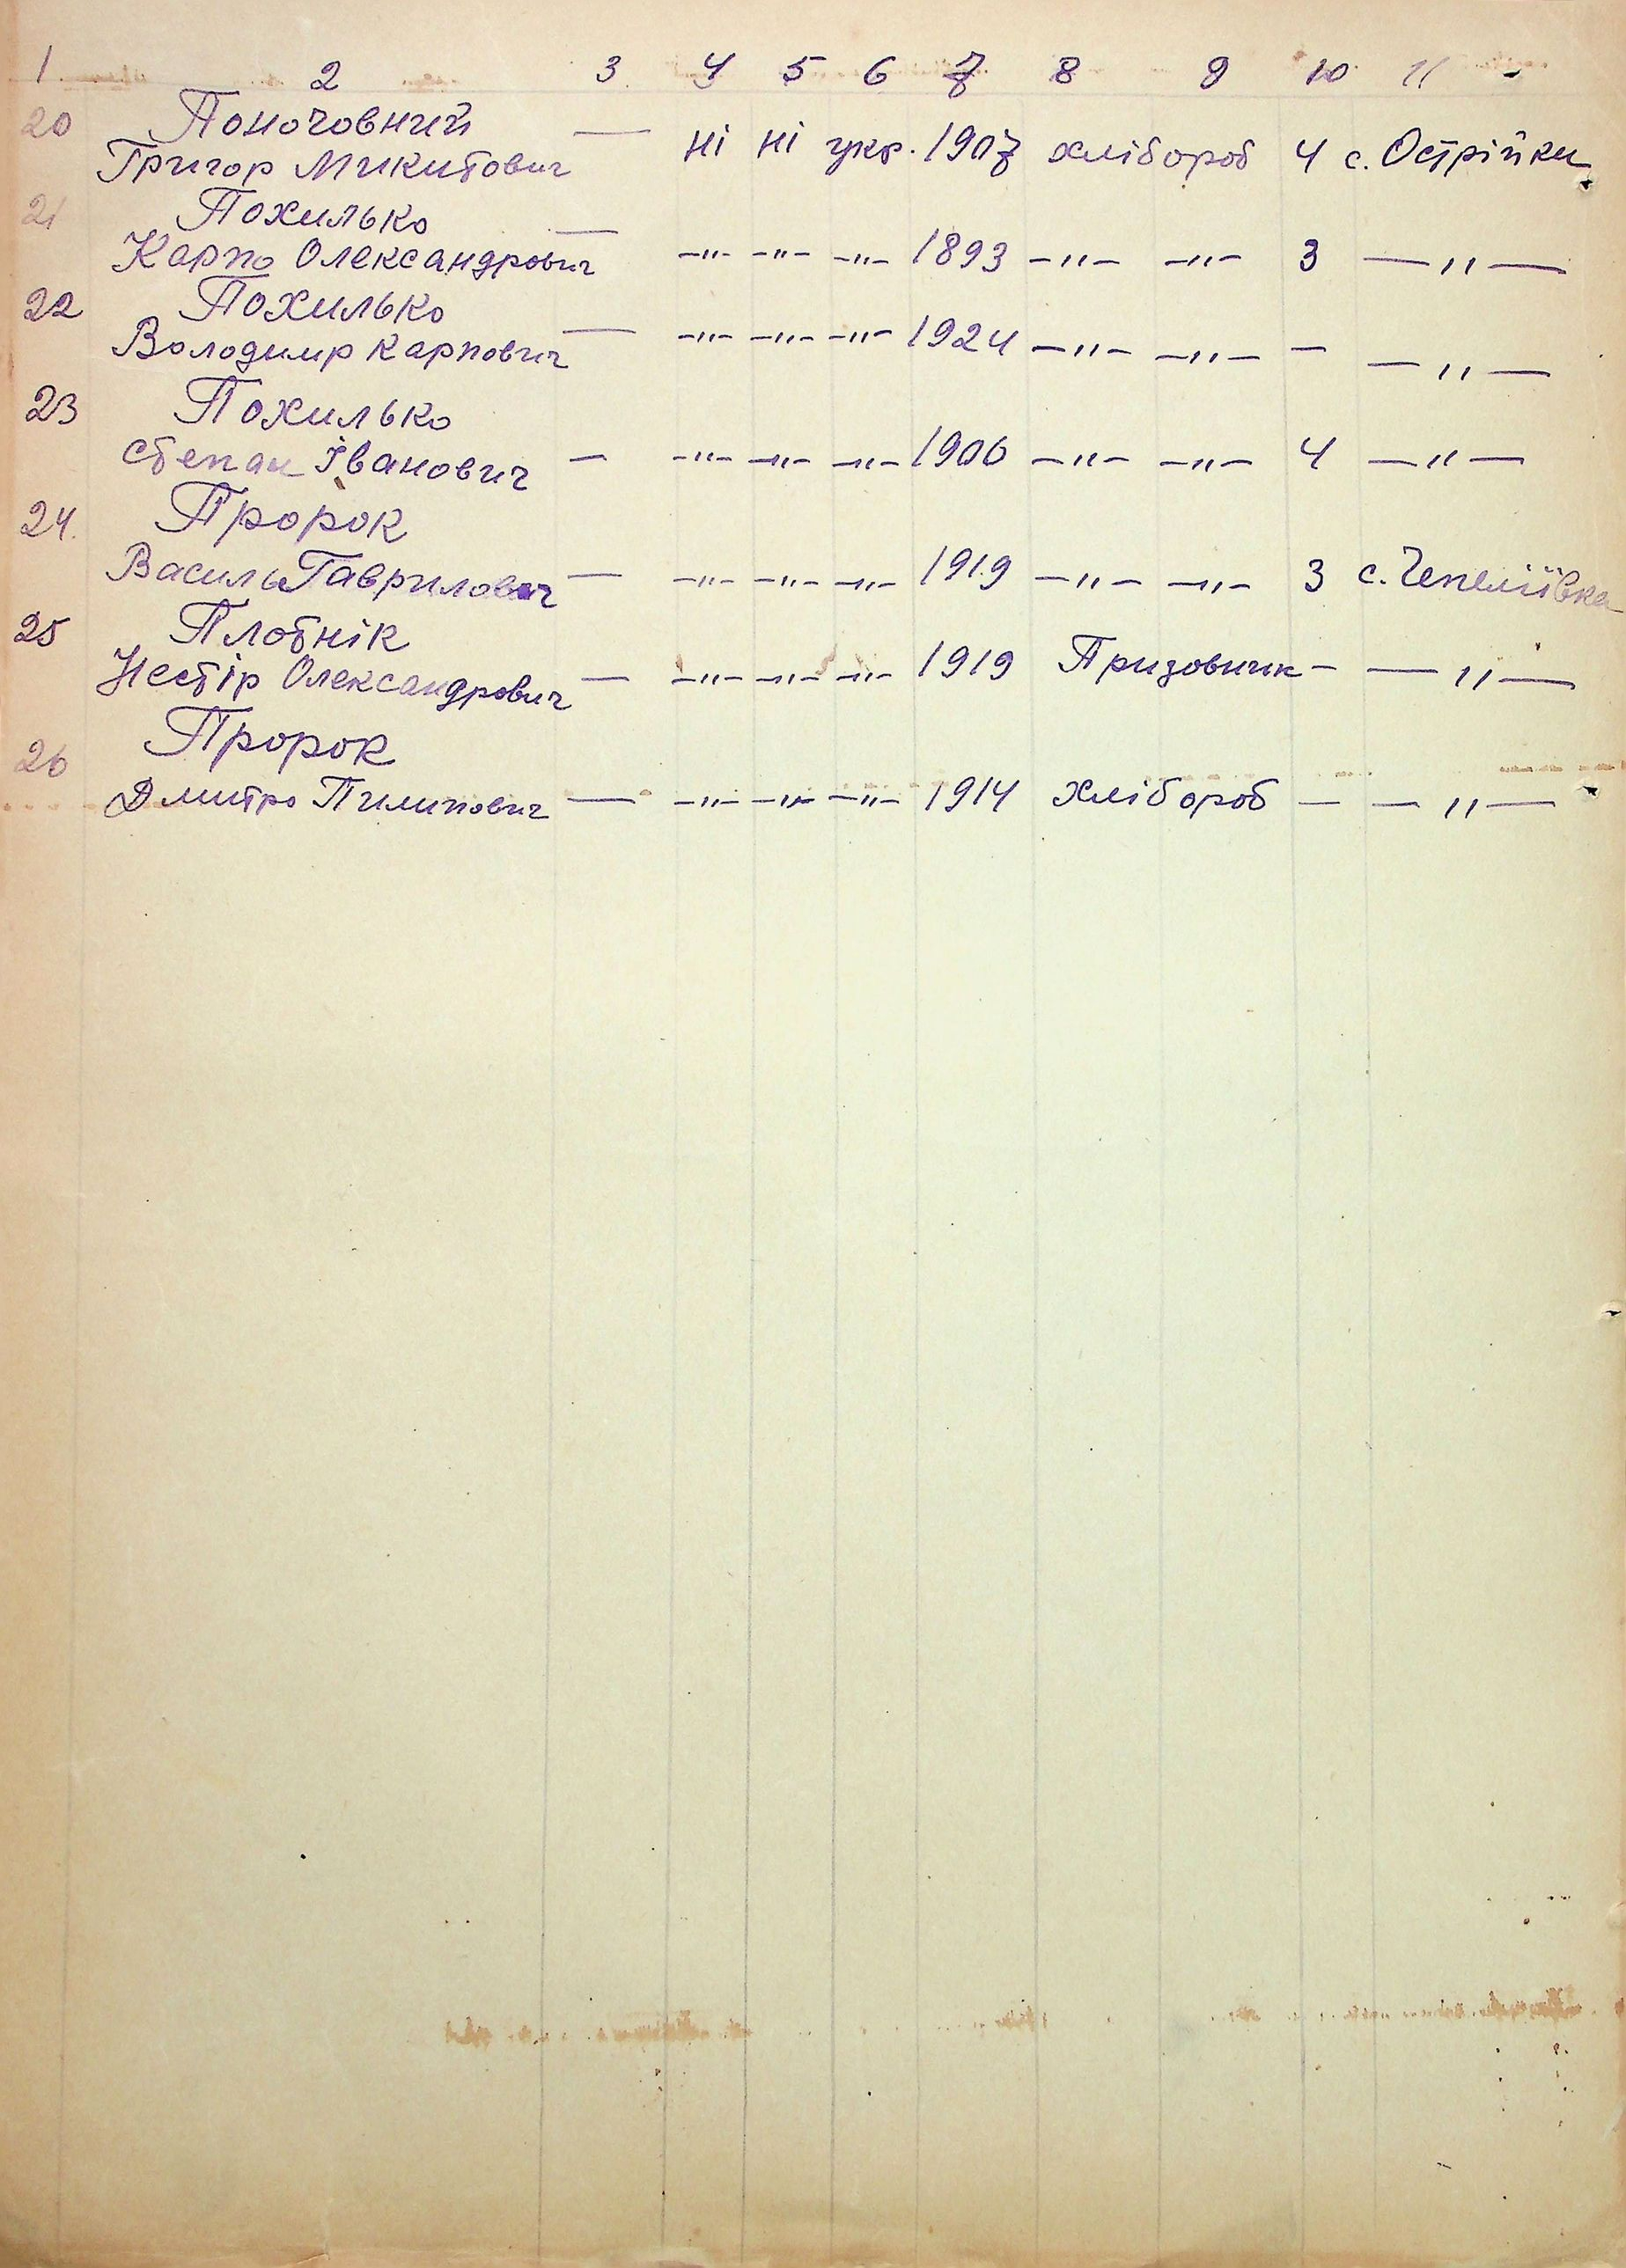 1 2 3 4 5 6 7 8 9 10 11
20 Поночовний
Григор Микитович — ні ні укр. 1907 хлібороб 4 с. Острійки
21 Похилько
Карпо Олександрович — -"- -"- -"- 1893 -"- -"- 3 -"-
22 Похилько
Володимир Карпович — -"- -"- -"- 1924 -"- -"- — -"-
23 Похилько
Степан Іванович — -"- -"- -"- 1906 -"- -"- 4 -"-
24. Пророк
Василь Гаврилович — -"- -"- -"- 1919 -"- -"- 3 с. Чепеліївка
25 Плотнік
Нестір Олександрович — -"- -"- -"- 1919 Призовник — -"-
26 Пророк
Дмитро Пилипович — -"- -"- -"- 1914 хлібороб — -"-